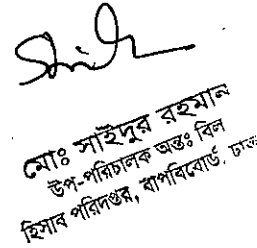 মোঃ সাইদুর রহমান
উপ-পরিচালক অন্তঃ বিল
হিসাব পরিদপ্তর, বাপবিবোর্ড, ঢাকা